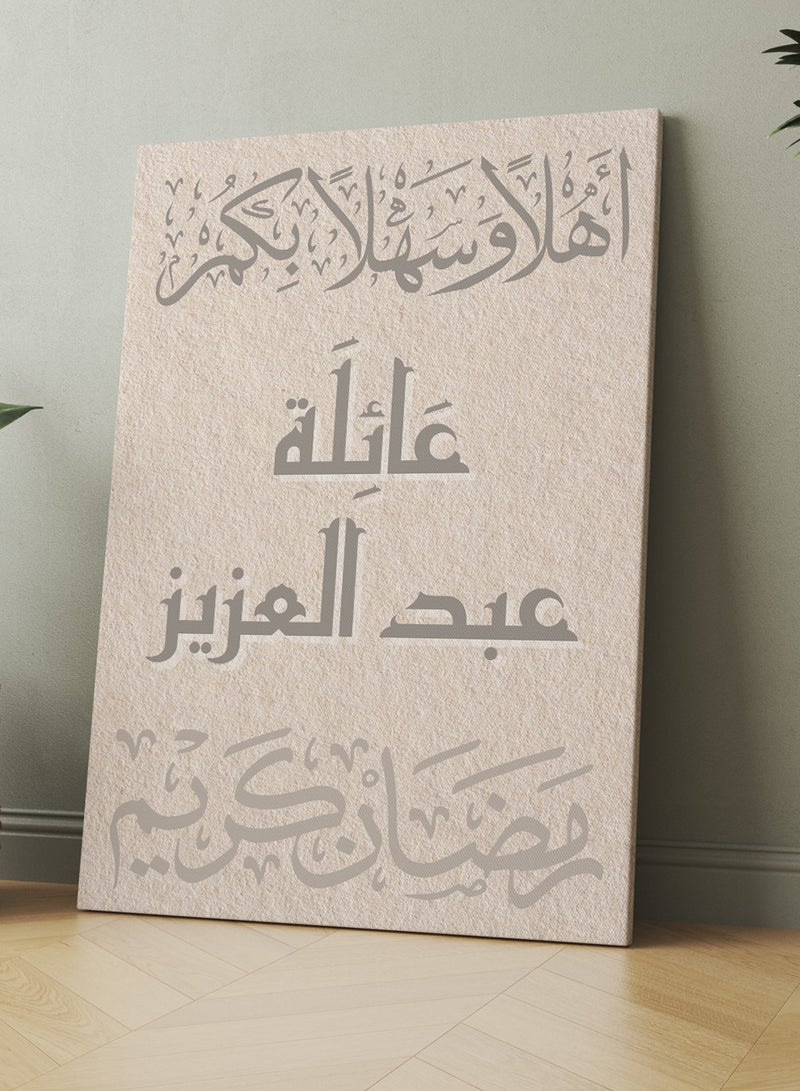 أَهْلًا وَسَهْلًا بِكُمْ
عَائِلَة
عبد العزيز
رَمَضَان كَرِيم